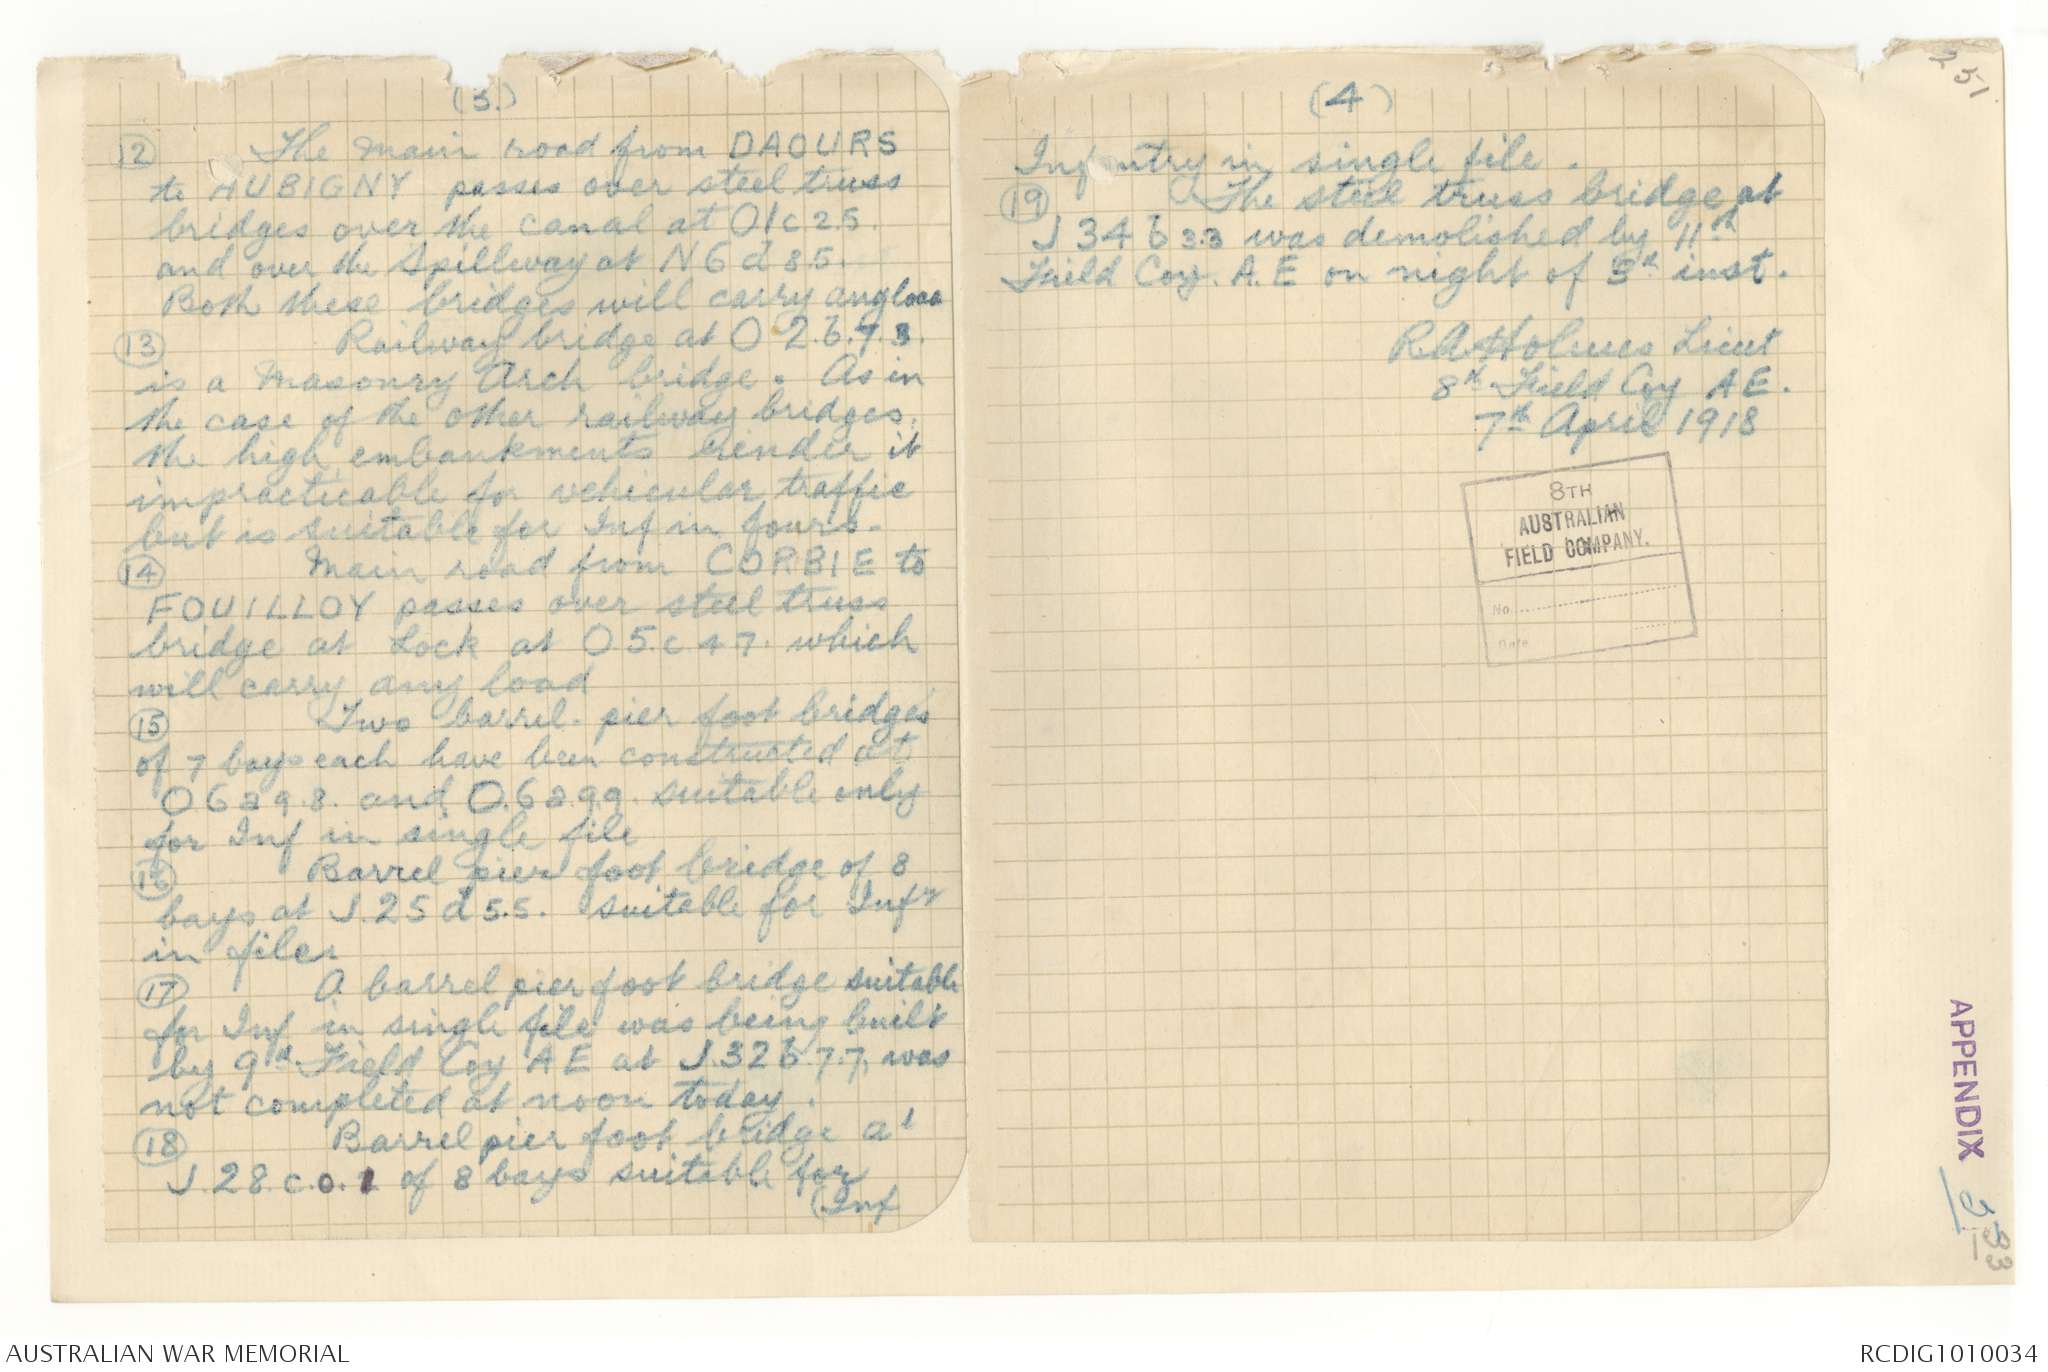 (3.)
(12) The main road from DAOURS
to AUBIGNY passes over steel truss
bridges over the canal at O1c 2.5.
and over the Spillway at N6 d 8.5.
Both these bridges will carry any load
(13) Railway bridge at O 2.b.7.3.
is a Masonry Arch bridge. As in
the case of the other railway bridges,
the high embankments render it
impracticable for vehicular traffic
but is suitable for Inf in fours.
(14) Main road from CORBIE to
FOUILLOY passes over steel truss
bridge at Lock at O5.c 4 7. which
will carry any load
(15) Two barrel pier foot bridges
of 7 bays each have been constructed at
O6a 9.8. and O.6a 9.9. suitable only
for Inf in single file
(16) Barrel pier foot bridge of 8
bays at J.25 d 5.5. suitable for Infy
in files
(17) A barrel pier foot bridge suitable
for Inf in single file was being built
by 9th Field Coy AE at J.32 b.7.7, was
not completed at noon today.
(18) Barrel pier foot bridge at
J.28.c.0.1 of 8 bays suitable for
(Inf
(4)
Infantry in single file.
(19) The steel truss bridge at
J 34 b 3.3 was demolished by 11th
Field Coy. A.E on night of 5th inst.
R.A Holmes Lieut
8th Field Coy AE.
7th April 1918
8TH
AUSTRALIAN
FIELD COMPANY.
No.
Date
251
APPENDIX
AUSTRALIAN WAR MEMORIAL
RCDIG1010034